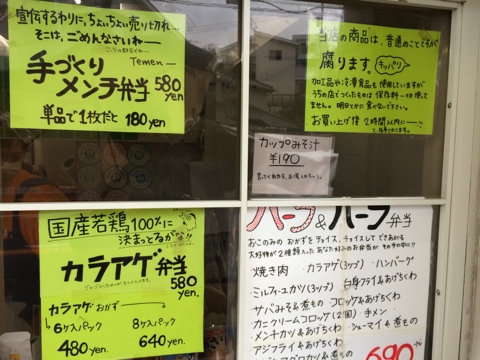 宣伝するわりに、ちょいちょい売り切れ…
そこは、ごめんなさいねー
手づくり
Temen
メンチ弁当 580
yen
単品で1枚だと 180yen
当店の商品は、普通のことですが
腐ります。
キッパリ
加工品や冷凍食品も使用していますが
うちの店でつくったものは保存料一切使して
ません。明日とかに食べないで下さい。
お買い上げ後 2時間以内にーー!!
カップみそ汁
¥190
国産若鶏100%に
決まっとるがな!!
カラアゲ弁当
580
yen.
カラアゲ・おかず
6ケ入パック
8ケ入パック
480 yen.
640 yen.
ハーフ&ハーフ弁当
おこのみの おかずをチョイス、チョイスして できあがる
大好物が2種類入った あなた好みのお弁当が その手の中に!!
・焼き肉 ・カラアゲ(3ップ) ・ハンバーグ
・ミルフィユカツ(3ップ) ・白身フライ&あげちくわ
・サバみそ&煮もの コロッケ&あげちくわ
・カニクリームコロッケ(2個) ・手メン
・メンチカツ&あげちくわ ・シューマイ&煮もの
・アジフライ&あげちくわ
690